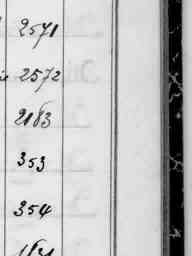 2571
2572
2183
353
354